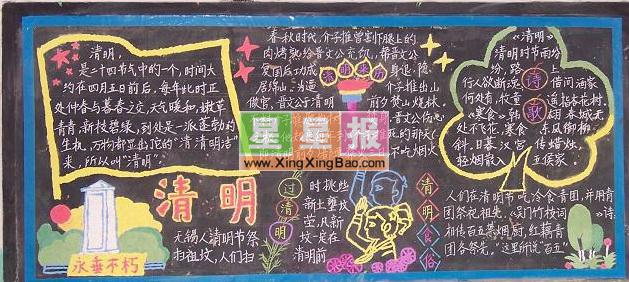 清明,
是二十四节气中的一个,时间大
约在四月五日前后,每年此时正
处仲春与暮春之交,天气暖和,嫩草
青青,新枝碧绿,到处是一派蓬勃的
生机,万物都显出花的“清清明洁”
来,所以叫“清明”。
春秋时代,介子推曾割下腿上的
肉烤熟给晋文公充饥,帮晋文公
清明来历
做官,晋文公于清明
前夕焚山烧林,
不吃烟火
星星报
www.XingXingBao.com
《清明》
清明时节雨纷
纷,路上
行人欲断魂
借问酒家
何处有,牧童
遥指杏花村。
诗歌
《寒食》韩
春城无
处不飞花,寒食
东风御柳
斜。日暮汉宫
传蜡烛,
轻烟散入
五侯家
永垂不朽
清明
无锡人清明节祭
扫祖坟,人们扫
过清明
时挑些
新土壅坟
茔,凡新
坟一定在
清明前
清明食俗
人们在清明节吃冷食青团,并用青
团祭祀祖先。《吴门竹枝词》诗
相传百五禁烟厨,红藕青
团各祭先,”这里所说“百五”